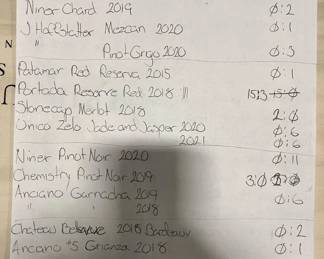 Niner Chard 2019 Ø:2
J Hoffstatter Mezcan 2020 Ø:1
" Pinot Grigo 2020 Ø:3
Patamar Red Reserva 2015 Ø:1
Portada Reserve Red 2018 111
Stonecap Merlot 2018 2:Ø
Unico Zelo Jade and Jasper 2020 Ø:6
2021 Ø:6
Niner Pinot Noir 2020 Ø:11
Chemistry Pinot Noir 2019 3:Ø
Anciano Garnacha 2019 Ø:6
" " 2018
Chateau Bellevue 2018 Bordeaux Ø:2
Anciano #5 Crianza 2018 Ø:1